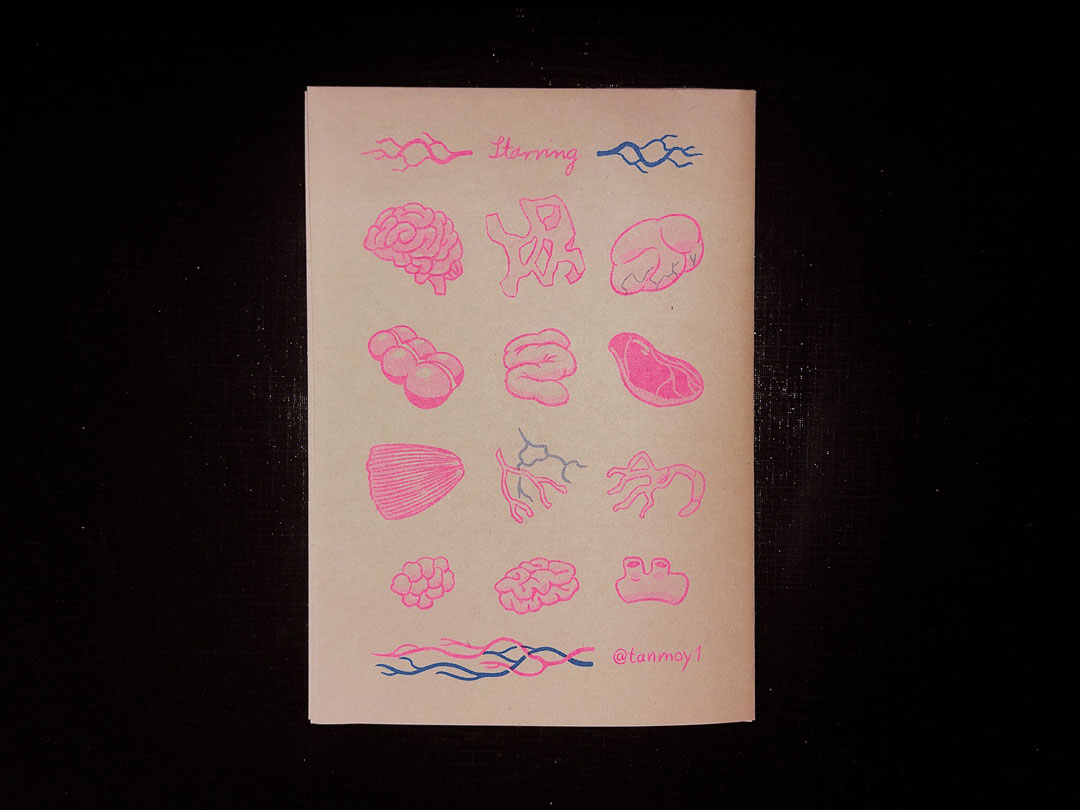 Starring
@tanmoy1